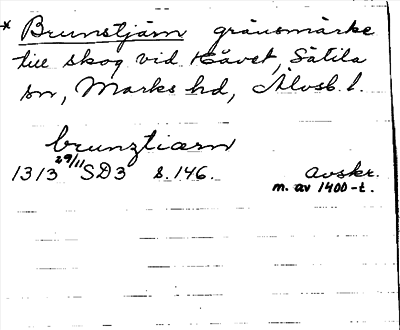 * Brunstjärn gränsmärke
till skog vid Hävet, Sätila
sn, Marks hd, Älvsb. l.
brunztiærn
1313 29/11 SD3 s. 146. avskr.
m. av 1400-t.